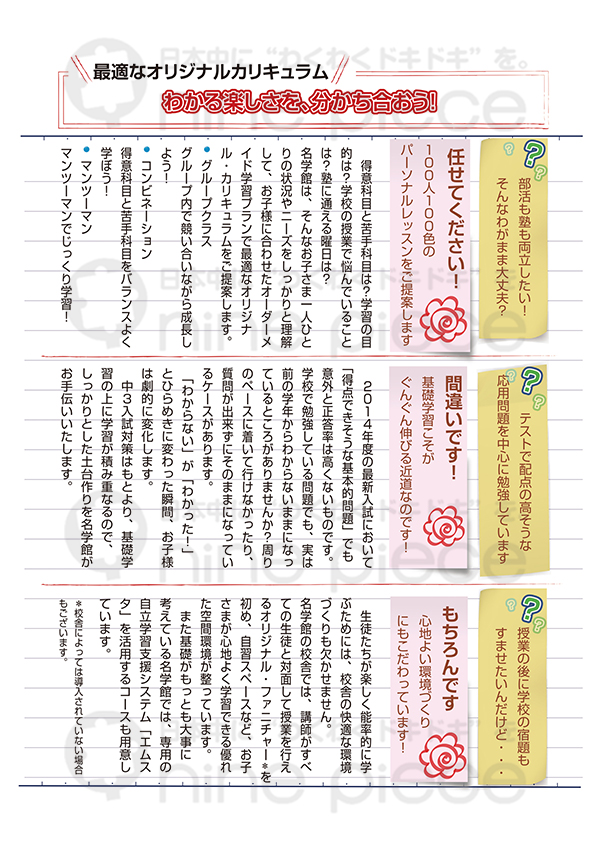 最適なオリジナルカリキュラム
わかる楽しさを、分かち合おう!
部活も塾も両立したい！
そんなわがまま大丈夫？
任せてください！
１００人１００色の
パーソナルレッスンをご提案します
得意科目と苦手科目は？学習の目
的は？学校の授業で悩んでいること
は？塾に通える曜日は？
名学館は、そんなお子さま一人ひと
りの状況やニーズをしっかりと理解
して、お子様に合わせたオーダーメ
イド学習プランで最適なオリジナ
ル・カリキュラムをご提案します。
● グループクラス
グループ内で競い合いながら成長し
よう！
● コンビネーション
得意科目と苦手科目をバランスよく
学ぼう！
● マンツーマン
マンツーマンでじっくり学習！
テストで配点の高そうな
応用問題を中心に勉強しています
間違いです！
基礎学習こそが
ぐんぐん伸びる近道なのです！
２０１４年度の最新入試において
「得点できそうな基本的問題」でも
意外と正答率は高くないものです。
学校で勉強している問題でも、実は
前の学年からわからないままになっ
ているところがありませんか？周り
のペースに着いて行けなかったり、
質問が出来ずにそのままになってい
るケースがあります。
「わからない」が「わかった！」
とひらめきに変わった瞬間、お子様
は劇的に変化します。
中３入試対策はもとより、基礎学
習の上に学習が積み重なるので、
しっかりとした土台作りを名学館が
お手伝いいたします。
授業の後に学校の宿題も
すませたいんだけど・・・
もちろんです
心地よい環境づくり
にもこだわっています！
生徒たちが楽しく能率的に学
ぶためには、校舎の快適な環境
づくりも欠かせません。
名学館の校舎では、講師がすべ
ての生徒と対面して授業を行え
るオリジナル・ファニチャー＊を
初め、自習スペースなど、お子
さまが心地よく学習できる優れ
た空間環境が整っています。
また基礎がもっとも大事に
考えている名学館では、専用の
自立学習支援システム「エムス
タ」を活用するコースも用意し
ています。
＊校舎によっては導入されていない場合
もございます。
日本中に“わくわくドキドキ”を。
nine piece
日本中に“わくわくドキドキ”を。
nine piece
日本中に“わくわくドキドキ”を。
nine piece
日本中に“わくわくドキドキ”を。
nine piece